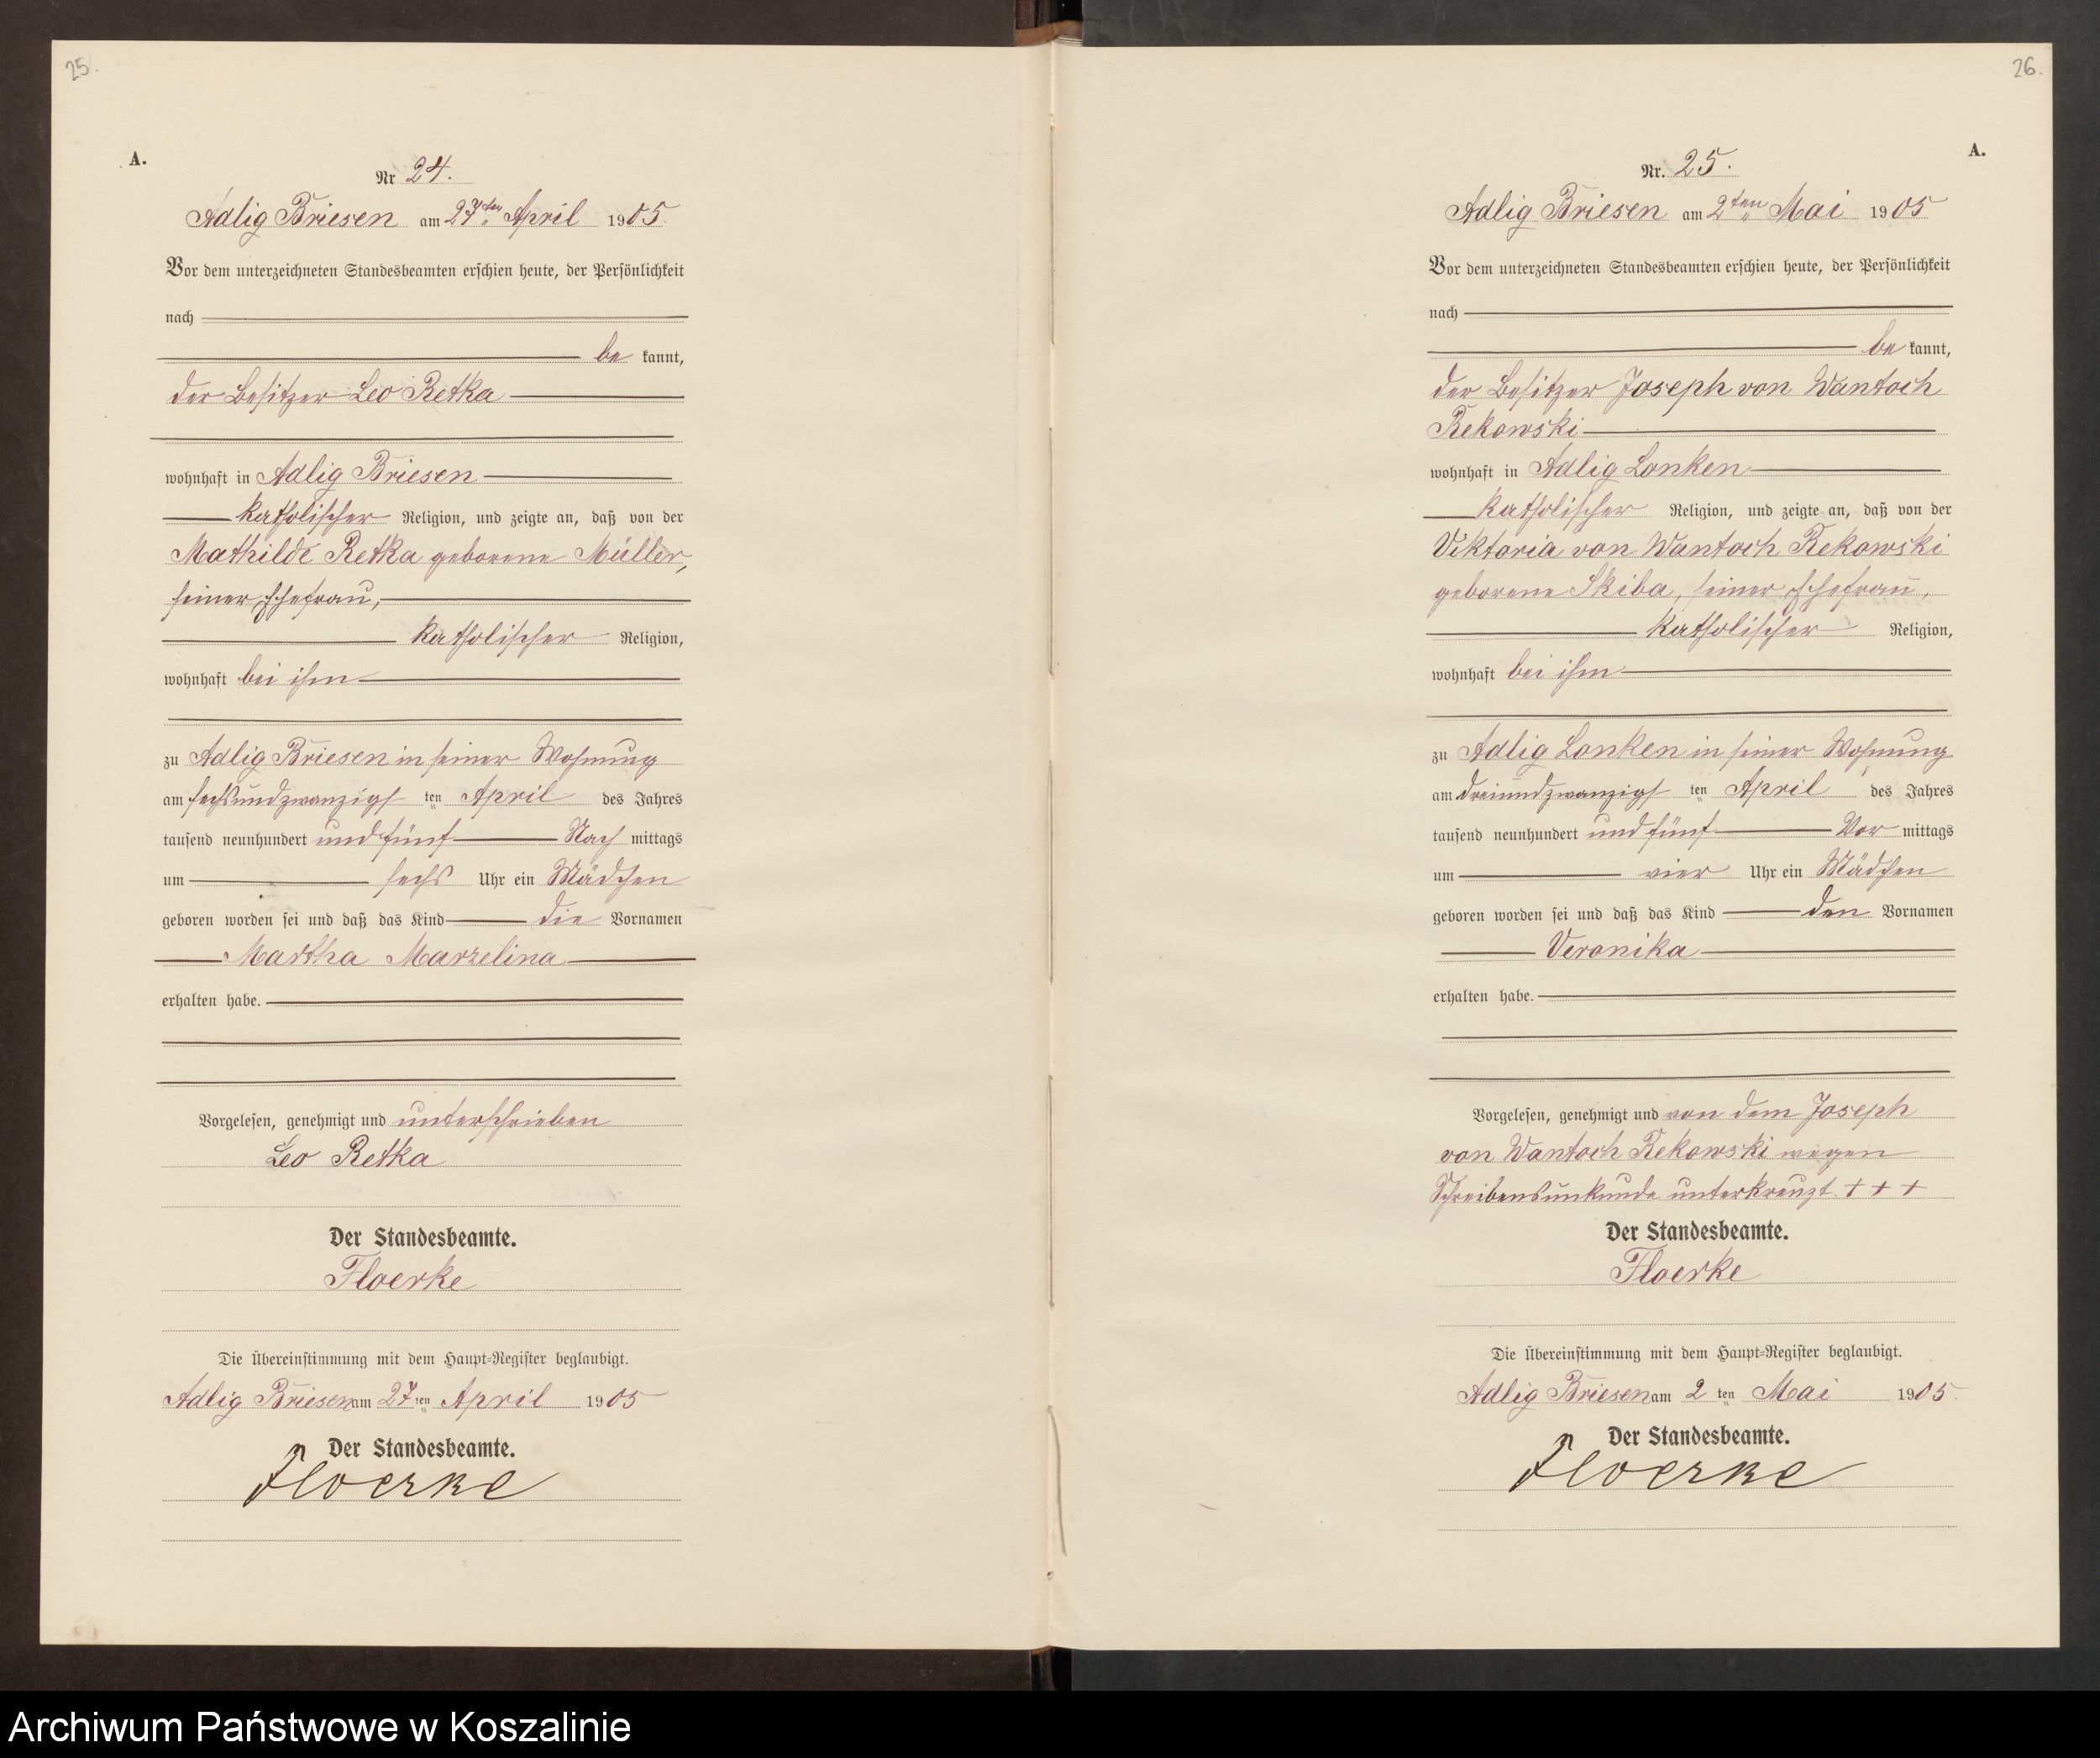 25.
A.
Nr 24.
Adlig Briesen am 27ten April 1905.
Vor dem unterzeichneten Standesbeamten erschien heute, der Persönlichkeit
nach
be kannt,
der Besitzer Leo Retka
wohnhaft in Adlig Briesen
katholischer Religion, und zeigte an, daß von der
Mathilde Retka geborene Müller,
seiner Ehefrau,
katholischer Religion,
wohnhaft bei ihm
zu Adlig Briesen in seiner Wohnung
am sechsundzwanzigs ten April des Jahres
tausend neunhundert und fünf Nach mittags
um sechs Uhr ein Mädchen
geboren worden sei und daß das Kind die Vornamen
Martha Marzelina
erhalten habe.
Vorgelesen, genehmigt und unterschrieben
Leo Retka
Der Standesbeamte.
Floerke
Die Übereinstimmung mit dem Haupt-Register beglaubigt.
Adlig Briesen am 27 ten April 1905
Der Standesbeamte.
Floerke
26.
A.
Nr. 25.
Adlig Briesen am 2ten Mai 1905
Vor dem unterzeichneten Standesbeamten erschien heute, der Persönlichkeit
nach
be kannt,
der Besitzer Joseph von Wantoch
Rekowski
wohnhaft in Adlig Lonken
katholischer Religion, und zeigte an, daß von der
Viktoria von Wantoch Rekowski
geborene Skiba, seiner Ehefrau,
katholischer Religion,
wohnhaft bei ihm
zu Adlig Lonken in seiner Wohnung
am dreiundzwanzigs ten April des Jahres
tausend neunhundert und fünf Vor mittags
um vier Uhr ein Mädchen
geboren worden sei und daß das Kind den Vornamen
Veronika
erhalten habe.
Vorgelesen, genehmigt und von dem Joseph
von Wantoch Rekowski wegen
Schreibensunkunde unterkreuzt. + + +
Der Standesbeamte.
Floerke
Die Übereinstimmung mit dem Haupt-Register beglaubigt.
Adlig Briesen am 2 ten Mai 1905.
Der Standesbeamte.
Floerke
Archiwum Państwowe w Koszalinie